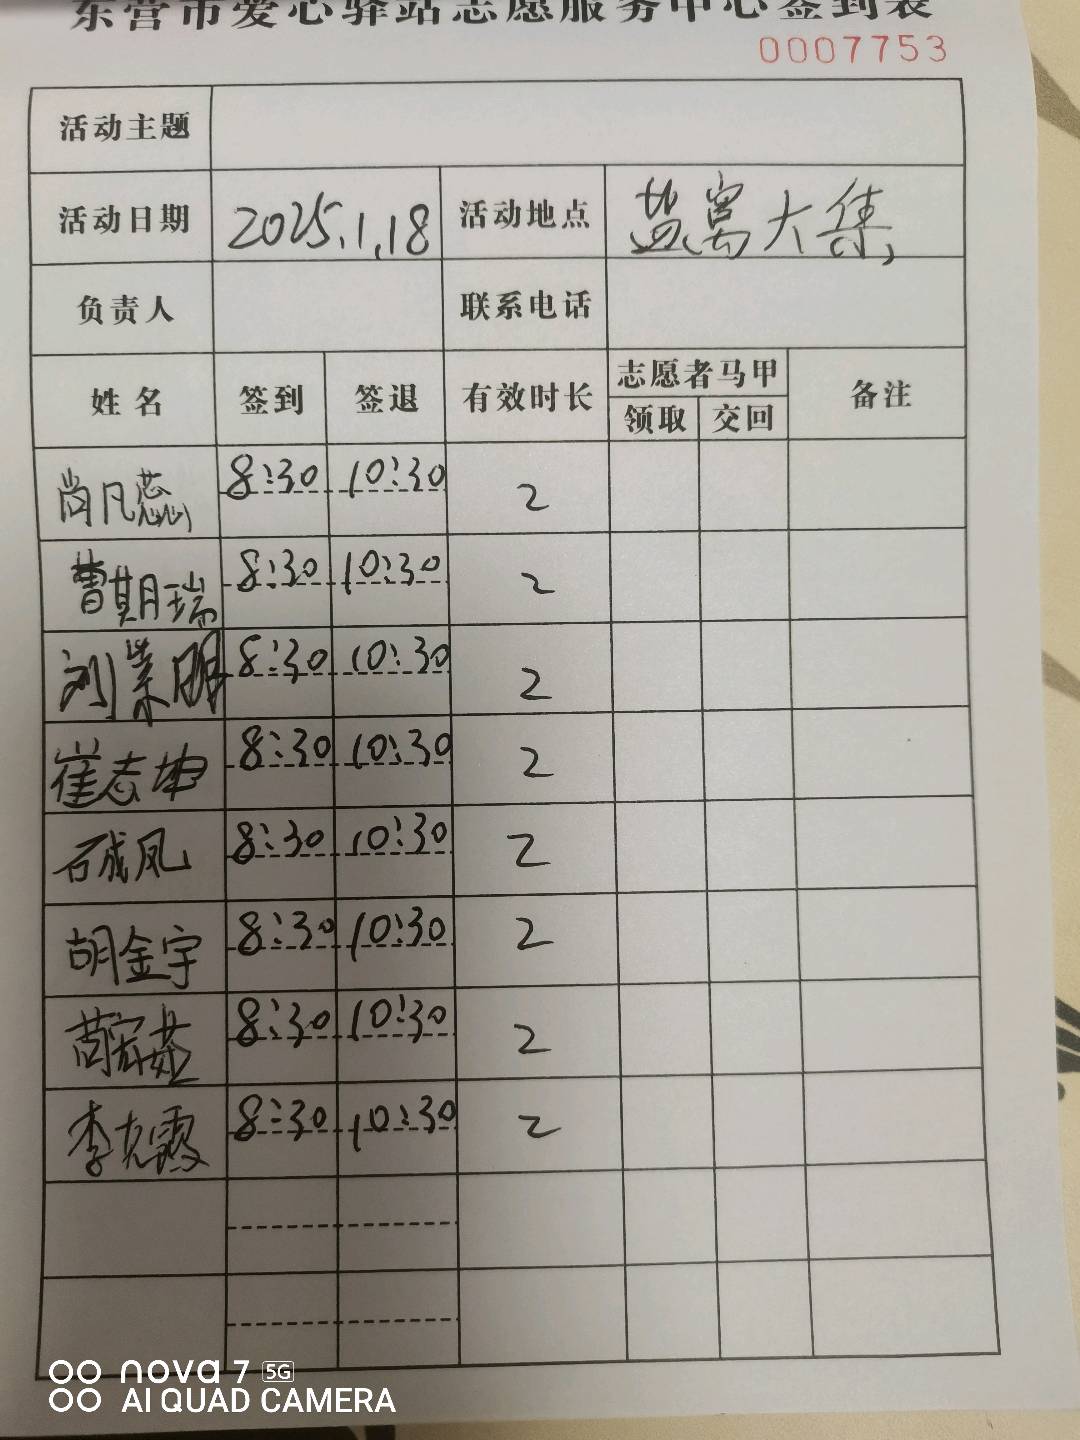 东营市爱心驿站志愿服务中心签到表
0007753
活动主题
活动日期 2025.1.18 活动地点 盐窝大集
负责人 联系电话
姓名 签到 签退 有效时长 志愿者马甲 备注
领取 交回
尚凡蕊 8:30 10:30 2
曹期瑞 8:30 10:30 2
刘崇明 8:30 10:30 2
崔志坤 8:30 10:30 2
石成凤 8:30 10:30 2
胡金宇 8:30 10:30 2
8:30 10:30 2
李克霞 8:30 10:30 2
nova 7 5G
AI QUAD CAMERA